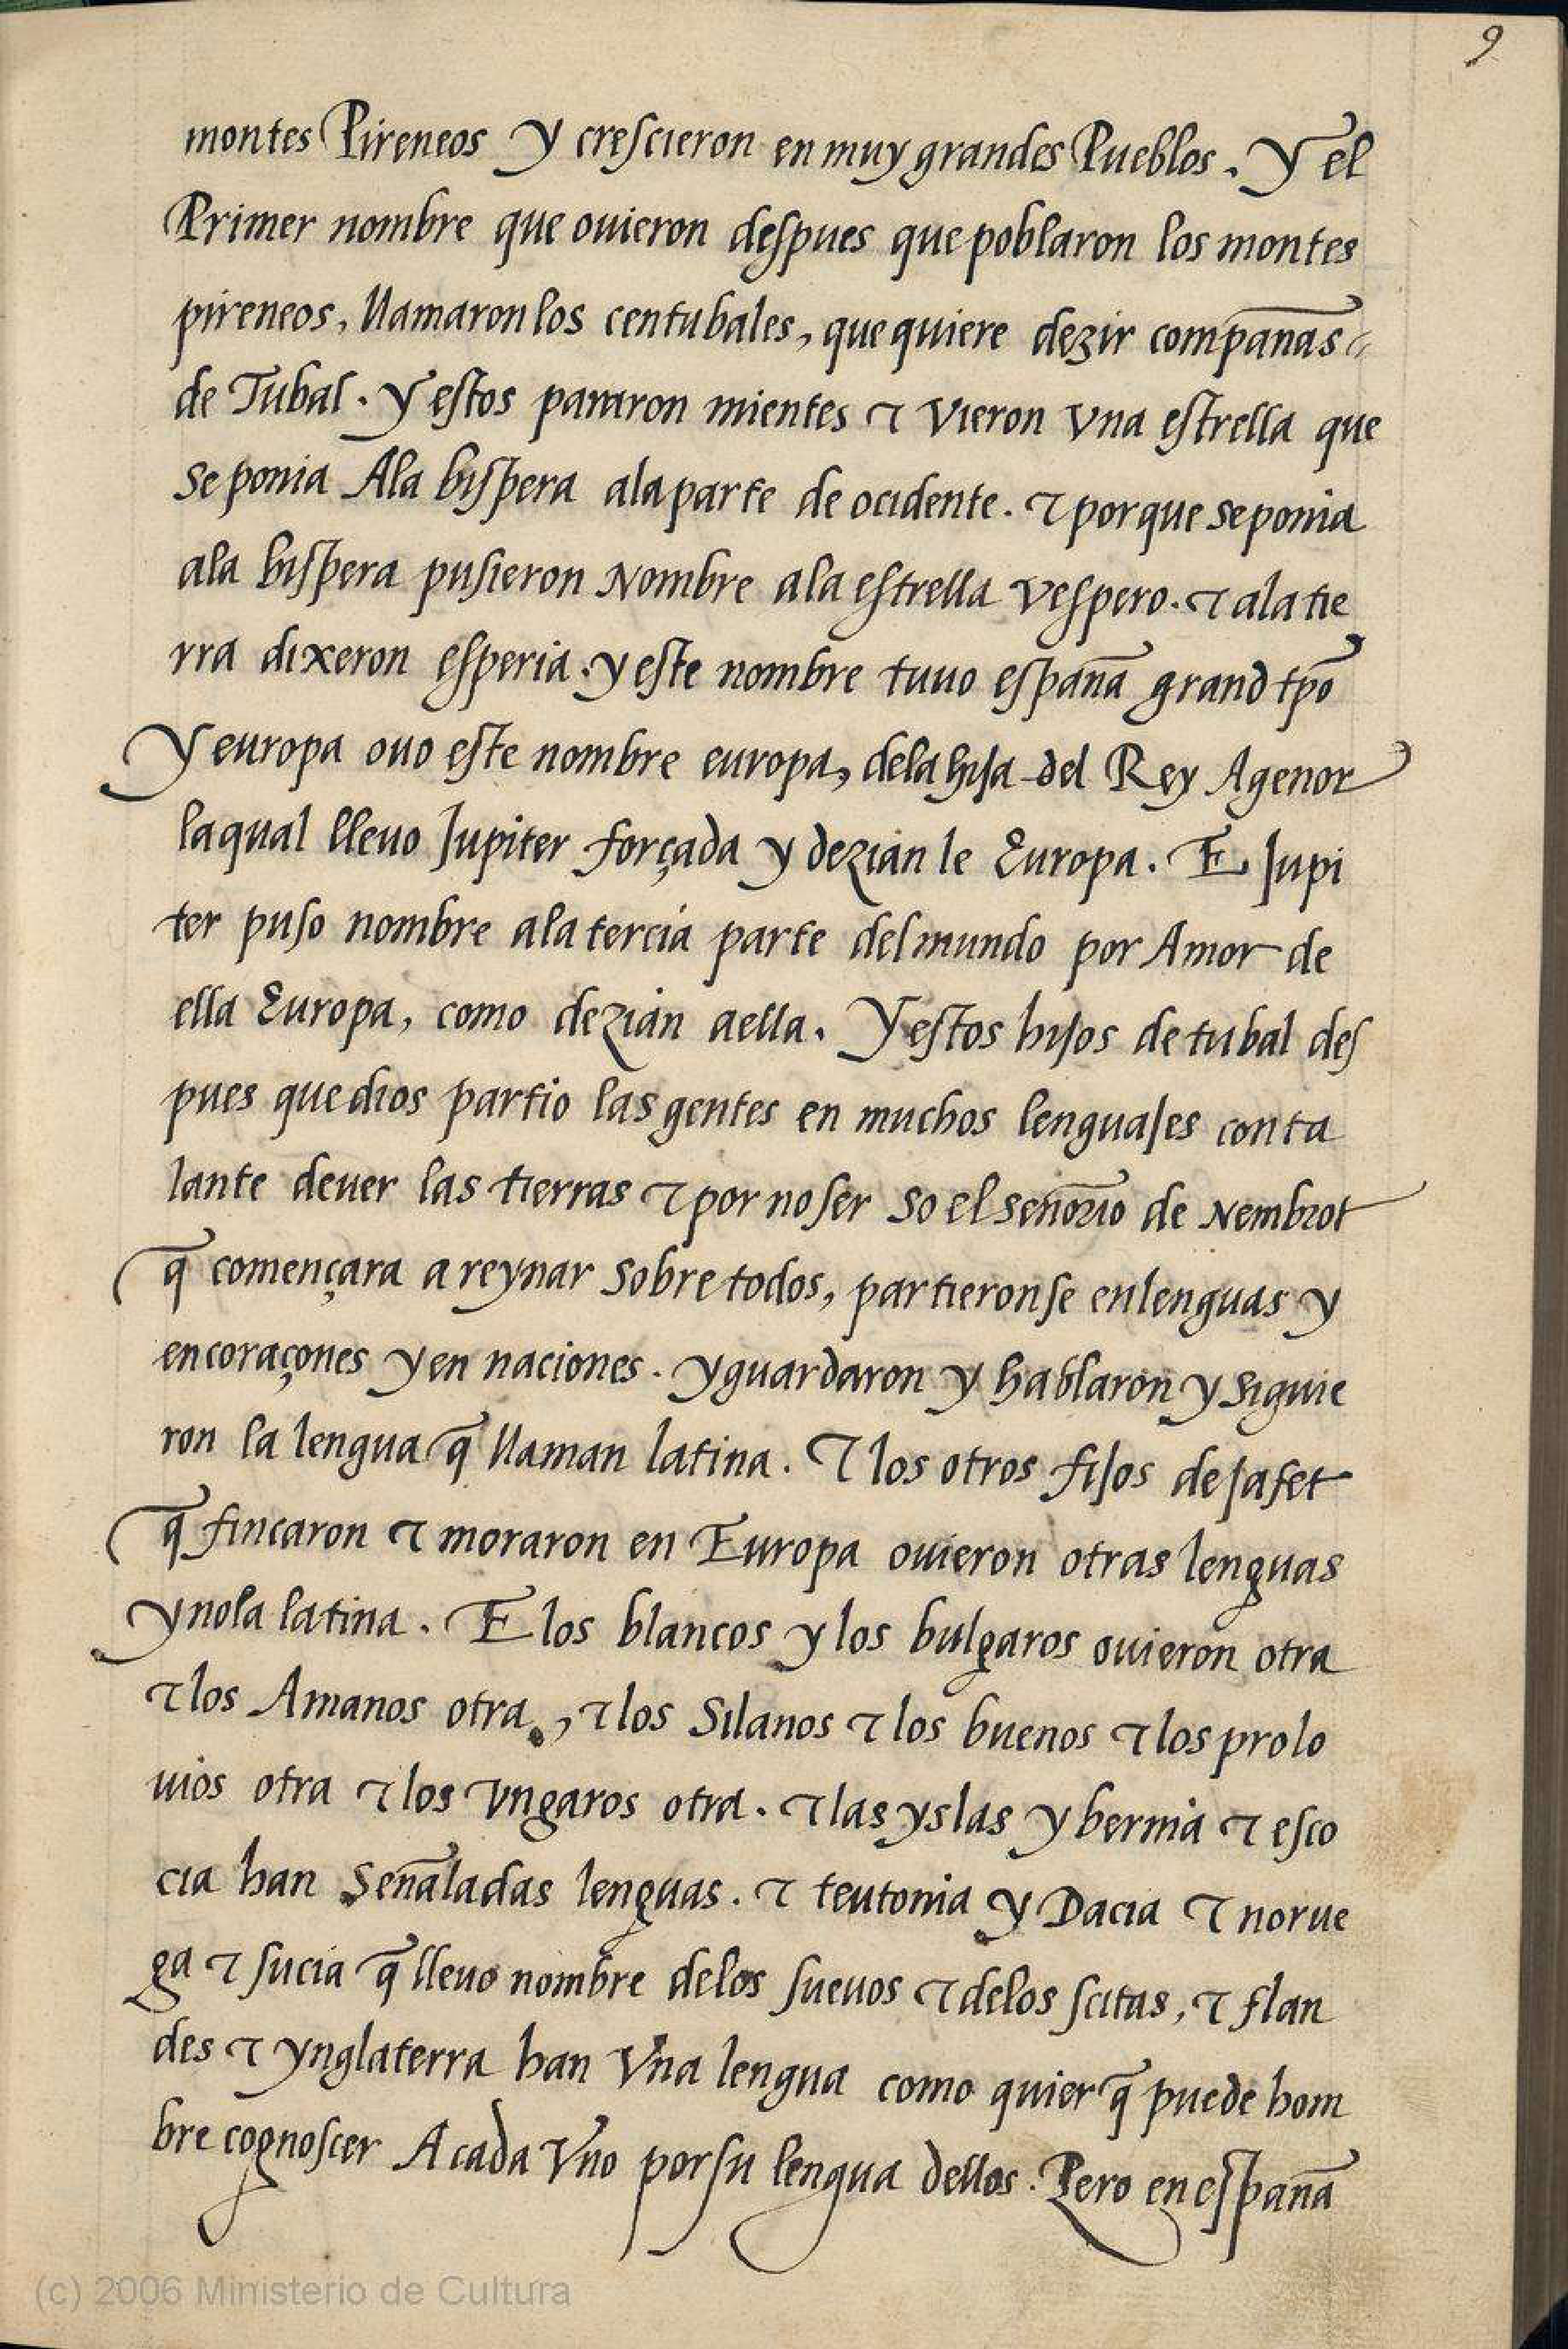 9
montes Pireneos y crescieron en muy grandes Pueblos. Y el
Primer nombre que ouieron despues que poblaron los montes
pireneos, llamaron los centubales, que quiere dezir compañas
de Tubal. Y estos pararon mientes ⁊ vieron vna estrella que
se ponia Ala bispera ala parte de ocidente. ⁊ porque se ponia
ala bispera pusieron Nombre ala estrella vespero. ⁊ ala tie
rra dixeron esperia. y este nombre tuuo españa grand tp̄o
Y europa ouo este nombre europa, dela hija del Rey Agenor
laqual lleuo Jupiter forçada y dezian le Europa. E Jupi
ter puso nombre ala tercia parte del mundo por Amor de
ella Europa, como dezian aella. Y estos hijos de tubal des
pues que dios partio las gentes en muchos lenguajes con ta
lante de uer las tierras ⁊ por no ser so el señorio de Nembrot
q̄ començara a reynar sobre todos, partieronse en lenguas y
en coraçones y en naciones. y guardaron y hablaron y siguie
ron la lengua q̄ llaman latina. ⁊ los otros fijos de jafet
q̄ fincaron ⁊ moraron en Europa ouieron otras lenguas
y no la latina. E los blancos y los bulgaros ouieron otra
⁊ los Amanos otra, ⁊ los Silanos ⁊ los buenos ⁊ los prolo
uios otra ⁊ los vngaros otra. ⁊ las yslas ybernia ⁊ esco
cia han señaladas lenguas. ⁊ teutonia y Dacia ⁊ norue
ga ⁊ sucia q̄ lleuo nombre delos sueuos ⁊ delos scitas, ⁊ flan
des ⁊ ynglaterra han vna lengua como quier q̄ puede hom
bre cognoscer A cada vno por su lengua dellos. Pero en españa
(c) 2006 Ministerio de Cultura